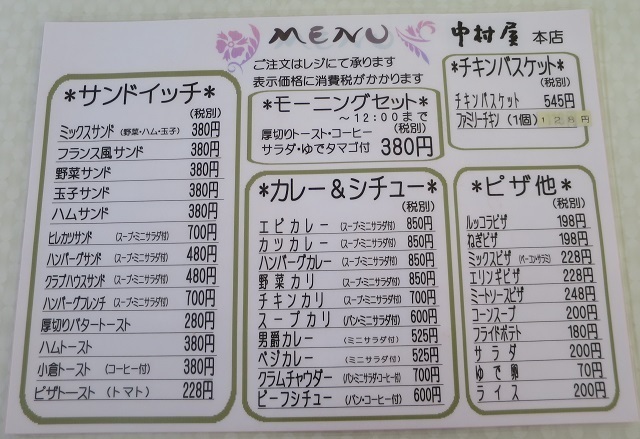 MENU 中村屋 本店
ご注文はレジにて承ります
表示価格に消費税がかかります
*サンドイッチ*
(税別)
ミックスサンド (野菜・ハム・玉子) 380円
フランス風サンド 380円
野菜サンド 380円
玉子サンド 380円
ハムサンド 380円
ヒレカツサンド (スープ・ミニサラダ付) 700円
ハンバーグサンド (スープ・ミニサラダ付) 480円
クラブハウスサンド (スープ・ミニサラダ付) 480円
ハンバーグフレンチ (スープ・ミニサラダ付) 700円
厚切りバタートースト 280円
ハムトースト 380円
小倉トースト (コーヒー付) 380円
ピザトースト (トマト) 228円
*モーニングセット*
～12:00まで
厚切りトースト・コーヒー (税別)
サラダ・ゆでタマゴ付 380円
*カレー&シチュー*
(税別)
エビカレー (スープ・ミニサラダ付) 850円
カツカレー (スープ・ミニサラダ付) 850円
ハンバーグカレー (スープ・ミニサラダ付) 850円
野菜カリー (スープ・ミニサラダ付) 850円
チキンカリー (スープ・ミニサラダ付) 700円
スープカリー (パン・ミニサラダ付) 600円
男爵カレー (ミニサラダ付) 525円
ベジカレー (ミニサラダ付) 525円
クラムチャウダー (パン・ミニサラダ・コーヒー付) 700円
ビーフシチュー (パン・コーヒー付) 600円
*チキンバスケット*
(税別)
チキンバスケット 545円
ファミリーチキン (1個) 128円
*ピザ他*
(税別)
ルッコラピザ 198円
ねぎピザ 198円
ミックスピザ (ベーコン・サラミ) 228円
エリンギピザ 228円
ミートソースピザ 248円
コーンスープ 200円
フライドポテト 180円
サラダ 200円
ゆで卵 70円
ライス 200円